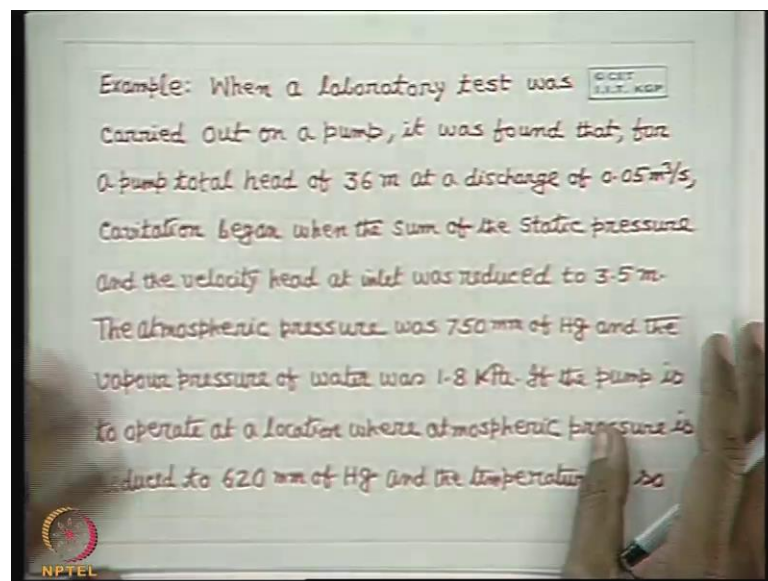 Example: When a laboratory test was
© CET
I.I.T. KGP
carried out on a pump, it was found that, for
a pump total head of 36 m at a discharge of 0.05 m³/s,
Cavitation began when the sum of the static pressure
and the velocity head at inlet was reduced to 3.5 m.
The atmospheric pressure was 750 mm of Hg and the
vapour pressure of water was 1.8 KPa. If the pump is
to operate at a location where atmospheric pressure is
reduced to 620 mm of Hg and the temperature so
NPTEL